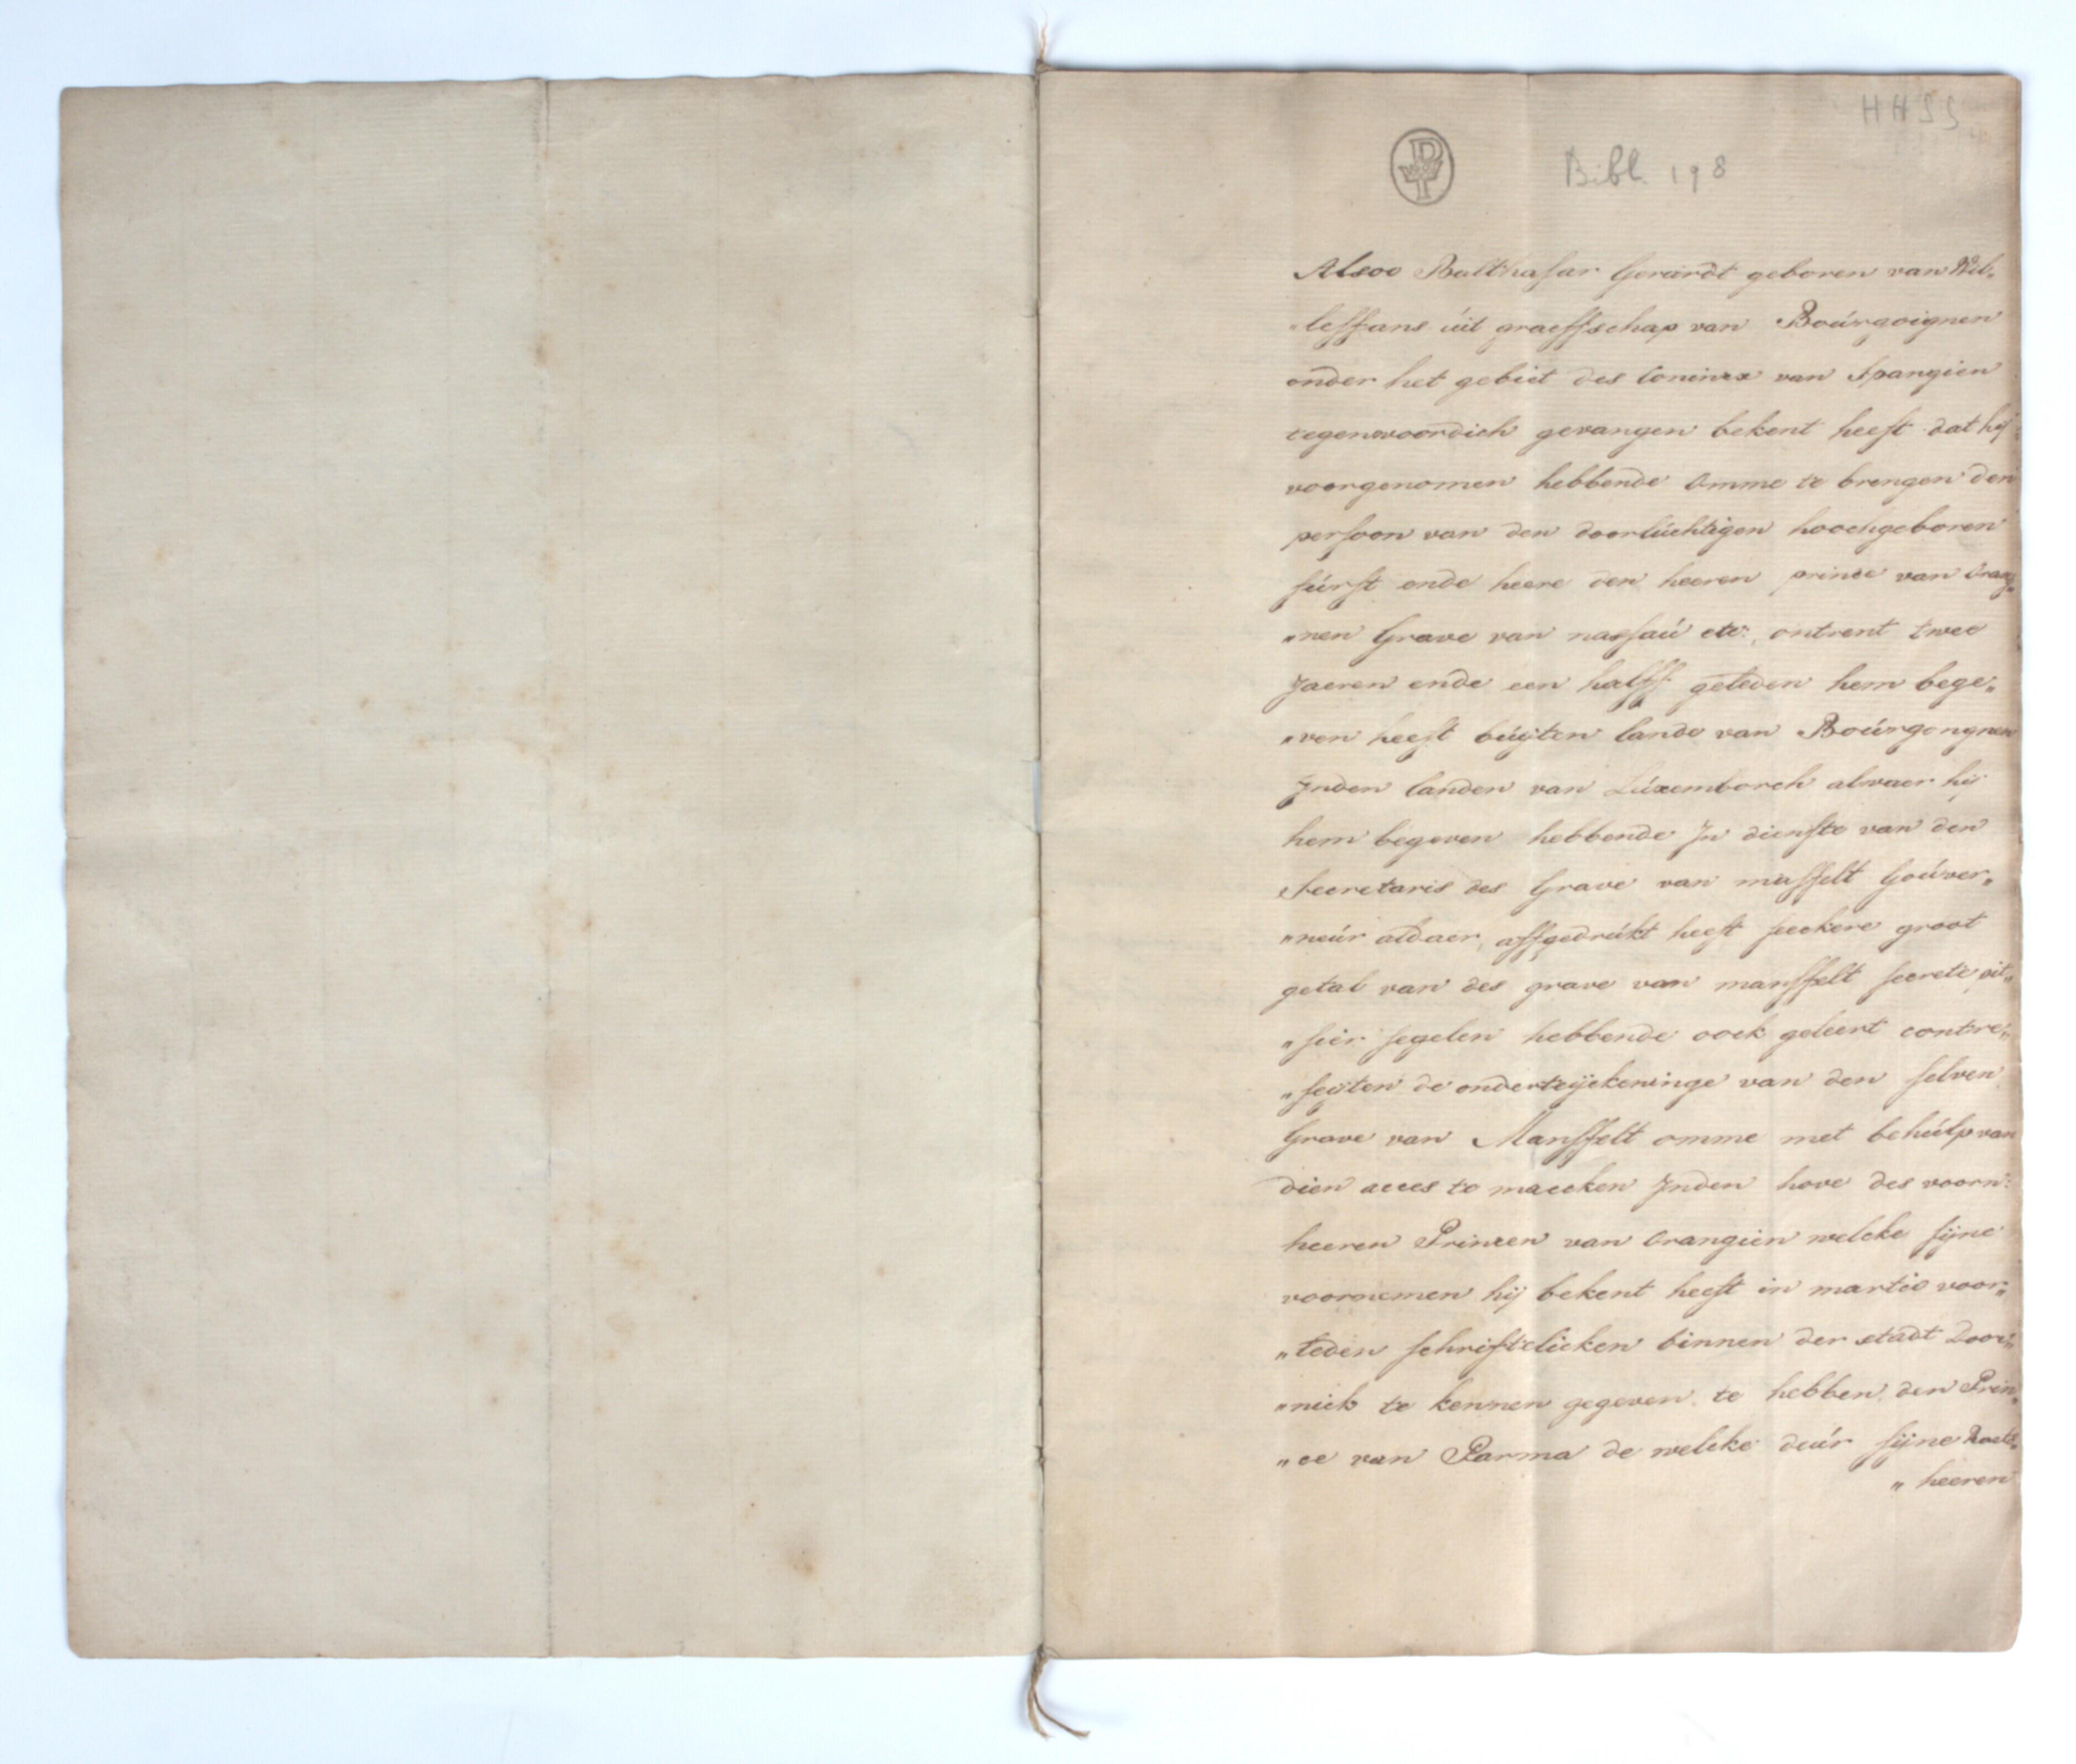 HHSS
Bibl. 198
Alsoo Balthasar Gerardt geboren van Wil„
„leffans úit graeffschap van Boúrgoignen
onder het gebiet des Conincx van Spangien
tegenwoordich gevangen bekent heeft dat hij
voorgenomen hebbende omme te brengen den
persoon van den doorlúchtigen hoochgeboren
fúrst ende heere den heeren prince van Orang„
„nen Grave van nassaú etc:, ontrent twee
Jaeren ende een halff geleden hem bege„
„ven heeft búijten lande van Boúrgongnen
Inden landen van Lúxemborch alwaer hij
hem begeven hebbende In dienste van den
Secretaris des Grave van masfelt Goúver„
„neúr aldaer, affgedrúkt heeft seekere groot
getal van des grave van mansfelt secrete cit„
„sier segelen hebbende oock geleert contre„
„feijten de onderteijckeninge van den selven
Grave van Mansfelt omme met behúlp van
dien acces te maecken Inden hove des voorn:
heeren Princen van Orangien welcke sijne
voornemen hij bekent heeft in martio voor„
„leden schriftelicken binnen der stadt Door„
„nick te kennen gegeven te hebben den Prin„
„ce van Parma de welcke deúr sijne Raets„
„heeren